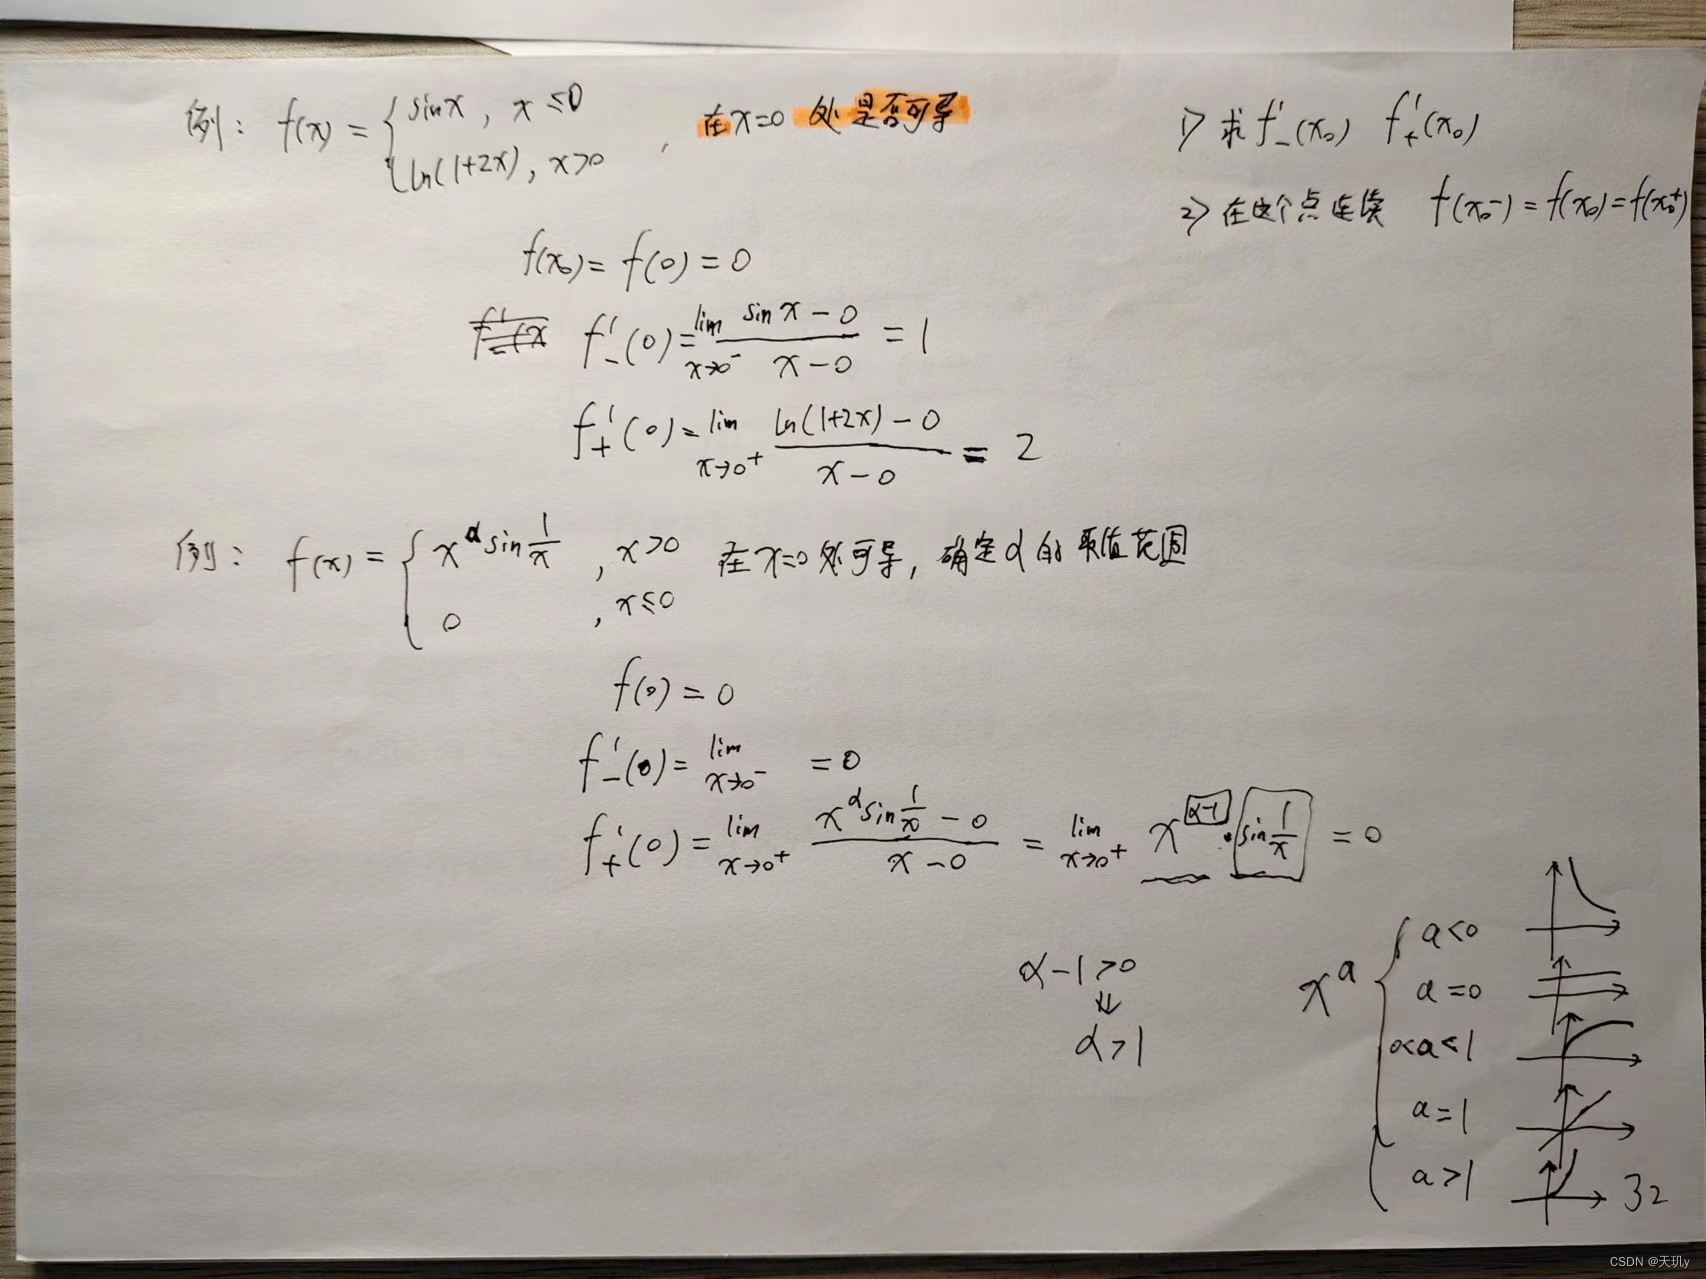 例: f(x) = { sinx, x≤0
ln(1+2x), x>0 , 在x=0 处是否可导
1> 求 f'₋(x₀) f'₊(x₀)
2> 在这个点连续 f(x₀⁻) = f(x₀) = f(x₀⁺)
f(x₀) = f(0) = 0
f'₋(0) = lim x→0⁻ (sin x - 0)/(x-0) = 1
f'₊(0) = lim x→0⁺ (ln(1+2x) - 0)/(x-0) = 2
例: f(x) = { x^α sin 1/x , x>0 在x=0处可导, 确定α的取值范围
0 , x≤0
f(0) = 0
f'₋(0) = lim x→0⁻ = 0
f'₊(0) = lim x→0⁺ (x^α sin 1/x - 0)/(x-0) = lim x→0⁺ x^(α-1) · sin 1/x = 0
α-1>0
⇓
α>1
x^a { a<0
a=0
0<a<1
a=1
a>1
32
CSDN @天玑y